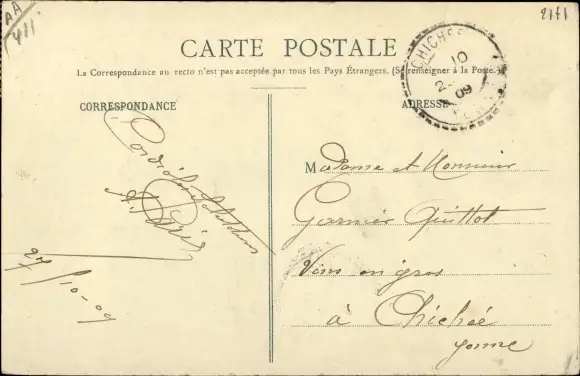 AA
411
2141
CARTE POSTALE
La Correspondance au recto n'est pas acceptée par tous les Pays Étrangers. (Se renseigner à la Poste.)
CORRESPONDANCE
ADRESSE
CHICHÉE
10
09
Cordiales
27/10-09
Madame et Monsieur
Garnier Quittot
Vins en gros
à Chichée
Yonne